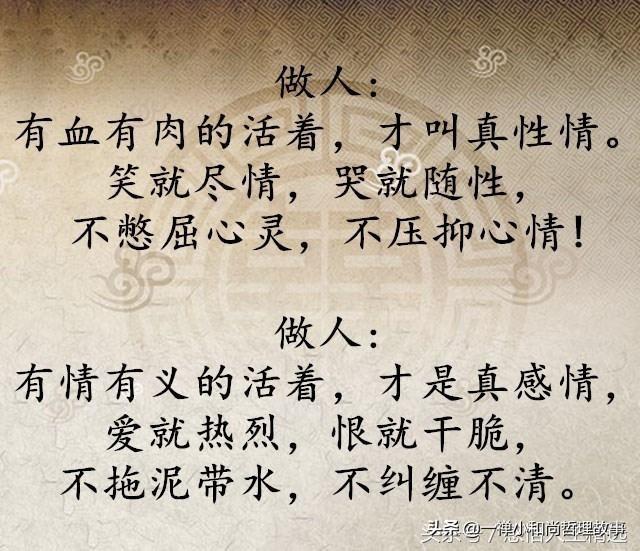 做人：
有血有肉的活着，才叫真性情。
笑就尽情，哭就随性，
不憋屈心灵，不压抑心情！
做人：
有情有义的活着，才是真感情，
爱就热烈，恨就干脆，
不拖泥带水，不纠缠不清。
头条 @一禅小和尚哲理故事